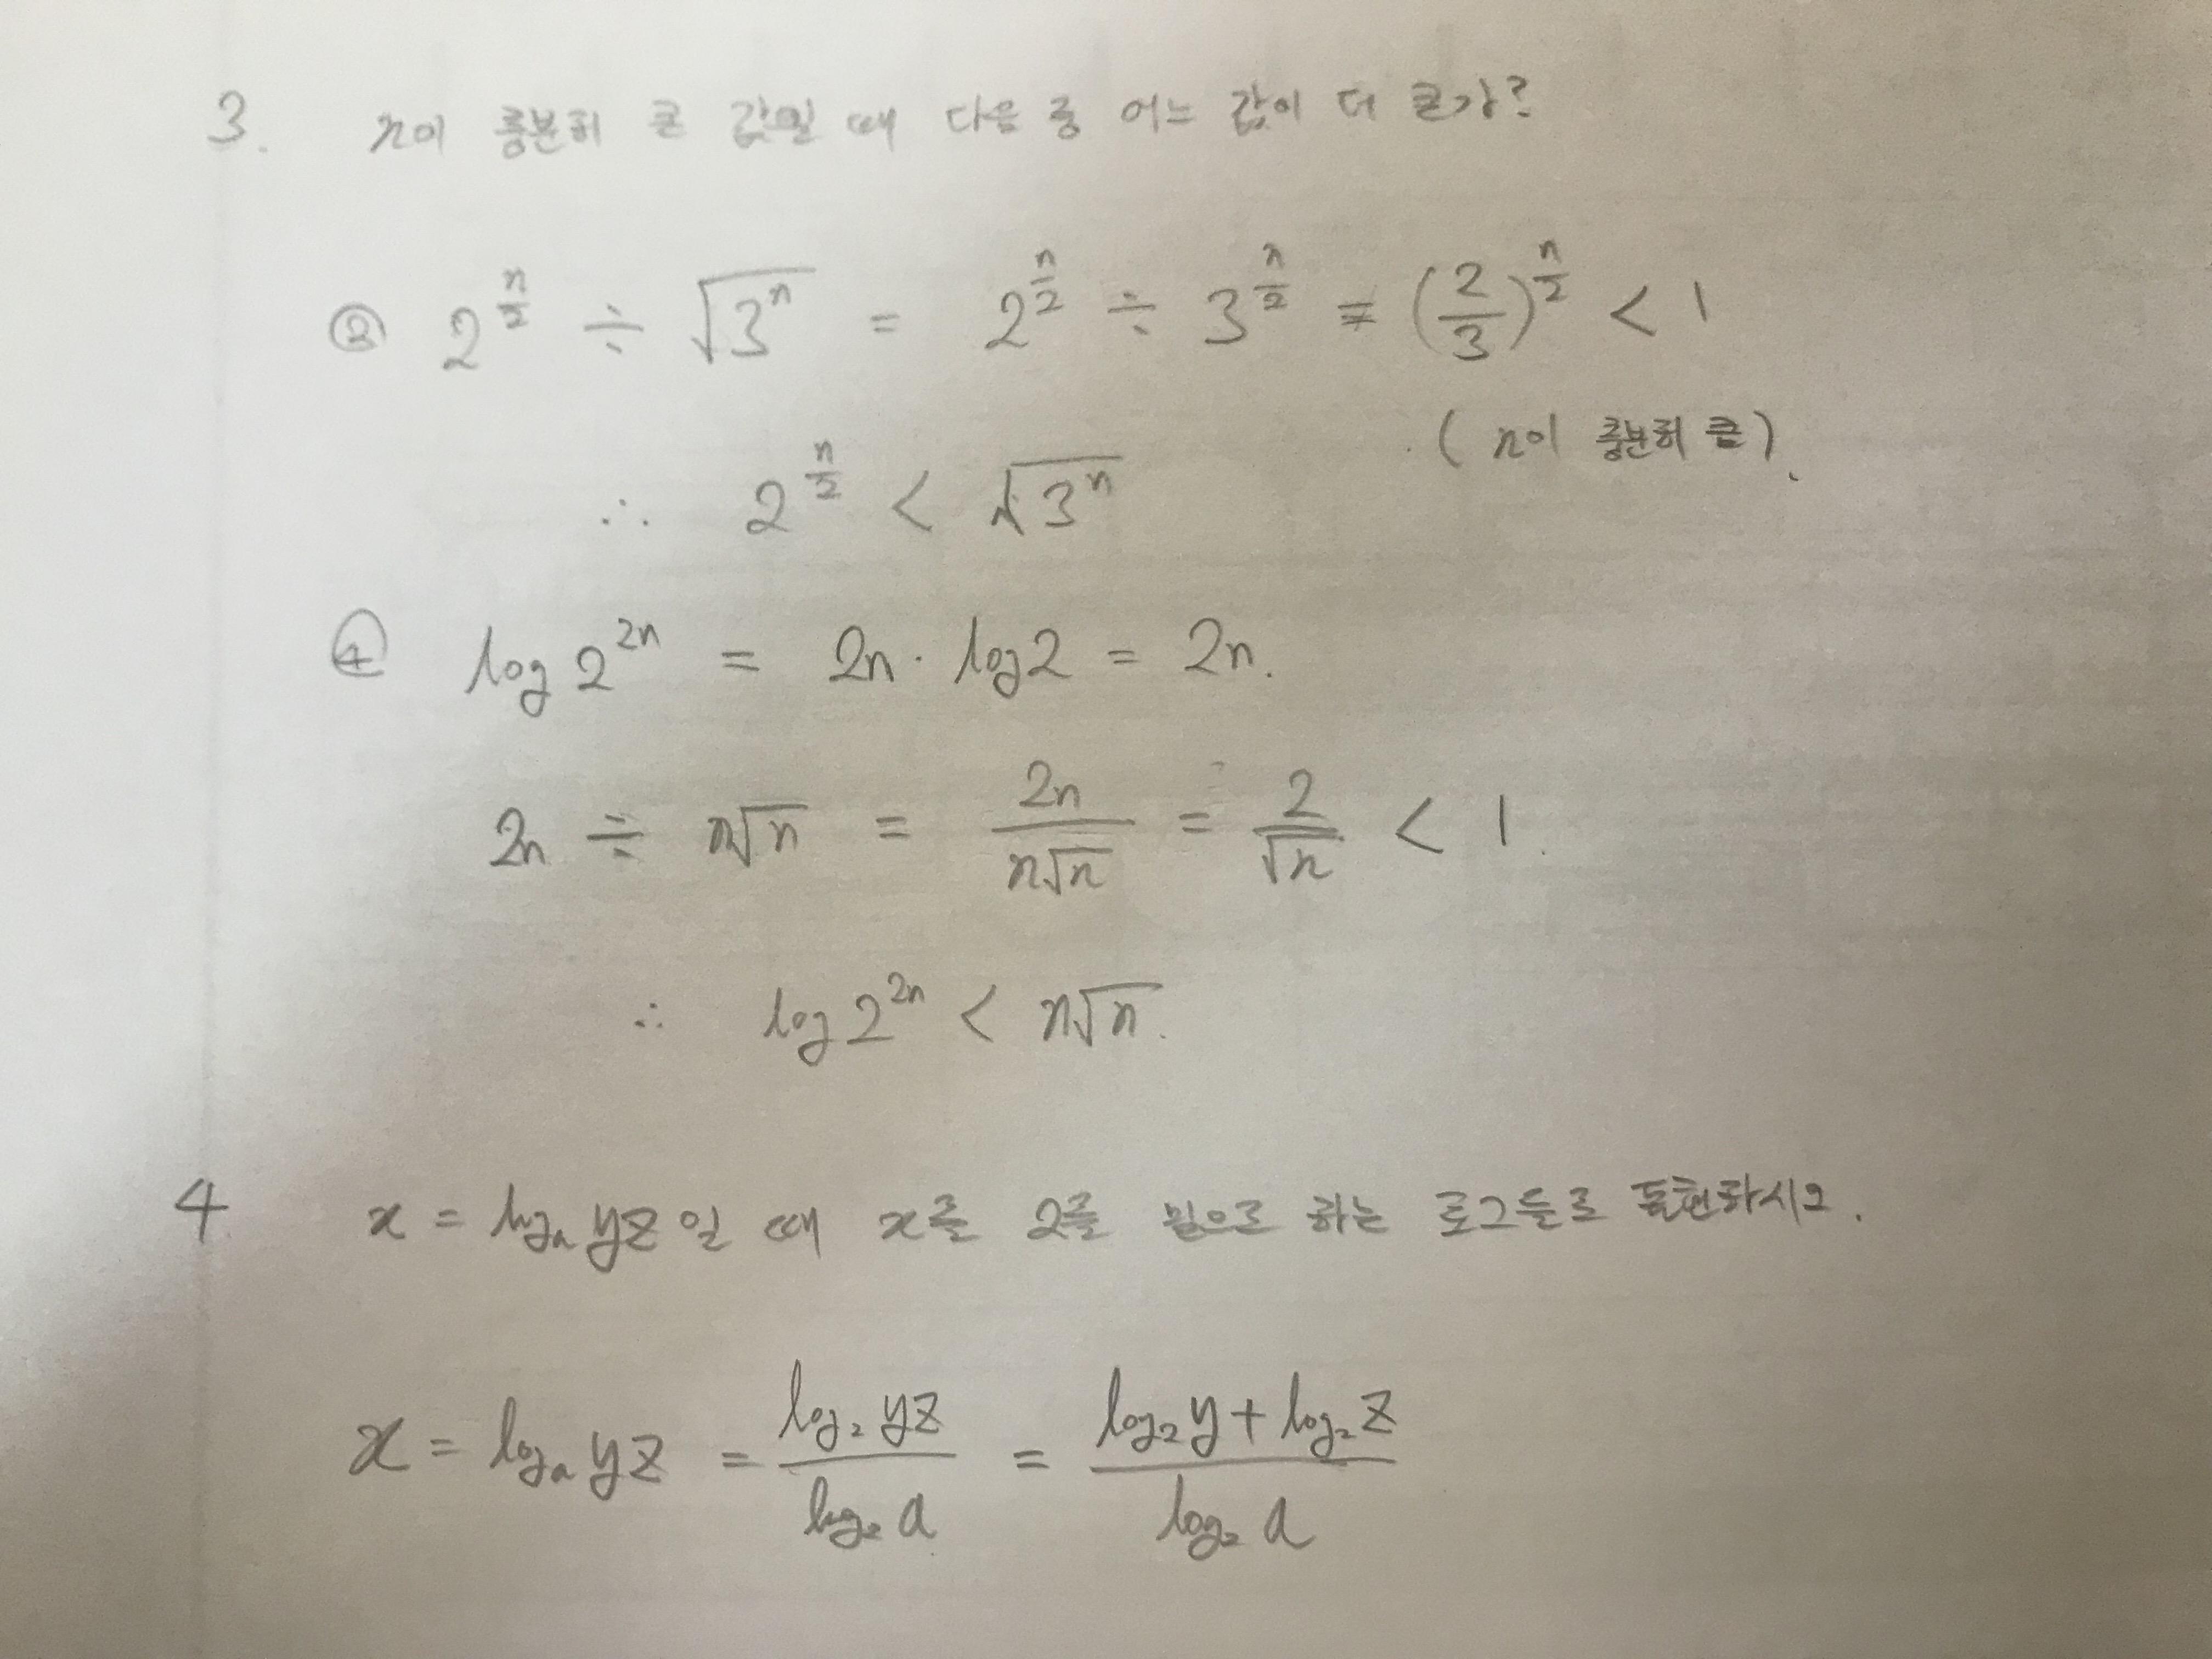 3. n이 충분히 큰 값일 때 다음 중 어느 값이 더 큰가?
② 2^(n/2) ÷ √(3^n) = 2^(n/2) ÷ 3^(n/2) = (2/3)^(n/2) < 1
(n이 충분히 큼).
∴ 2^(n/2) < √(3^n)
④ log 2^(2n) = 2n · log 2 = 2n.
2n ÷ n√n = 2n/(n√n) = 2/√n < 1.
∴ log 2^(2n) < n√n.
4 x = logₐ yz일 때 x를 2를 밑으로 하는 로그들로 표현하시오.
x = logₐ yz = (log₂ yz)/(log₂ a) = (log₂ y + log₂ z)/(log₂ a)